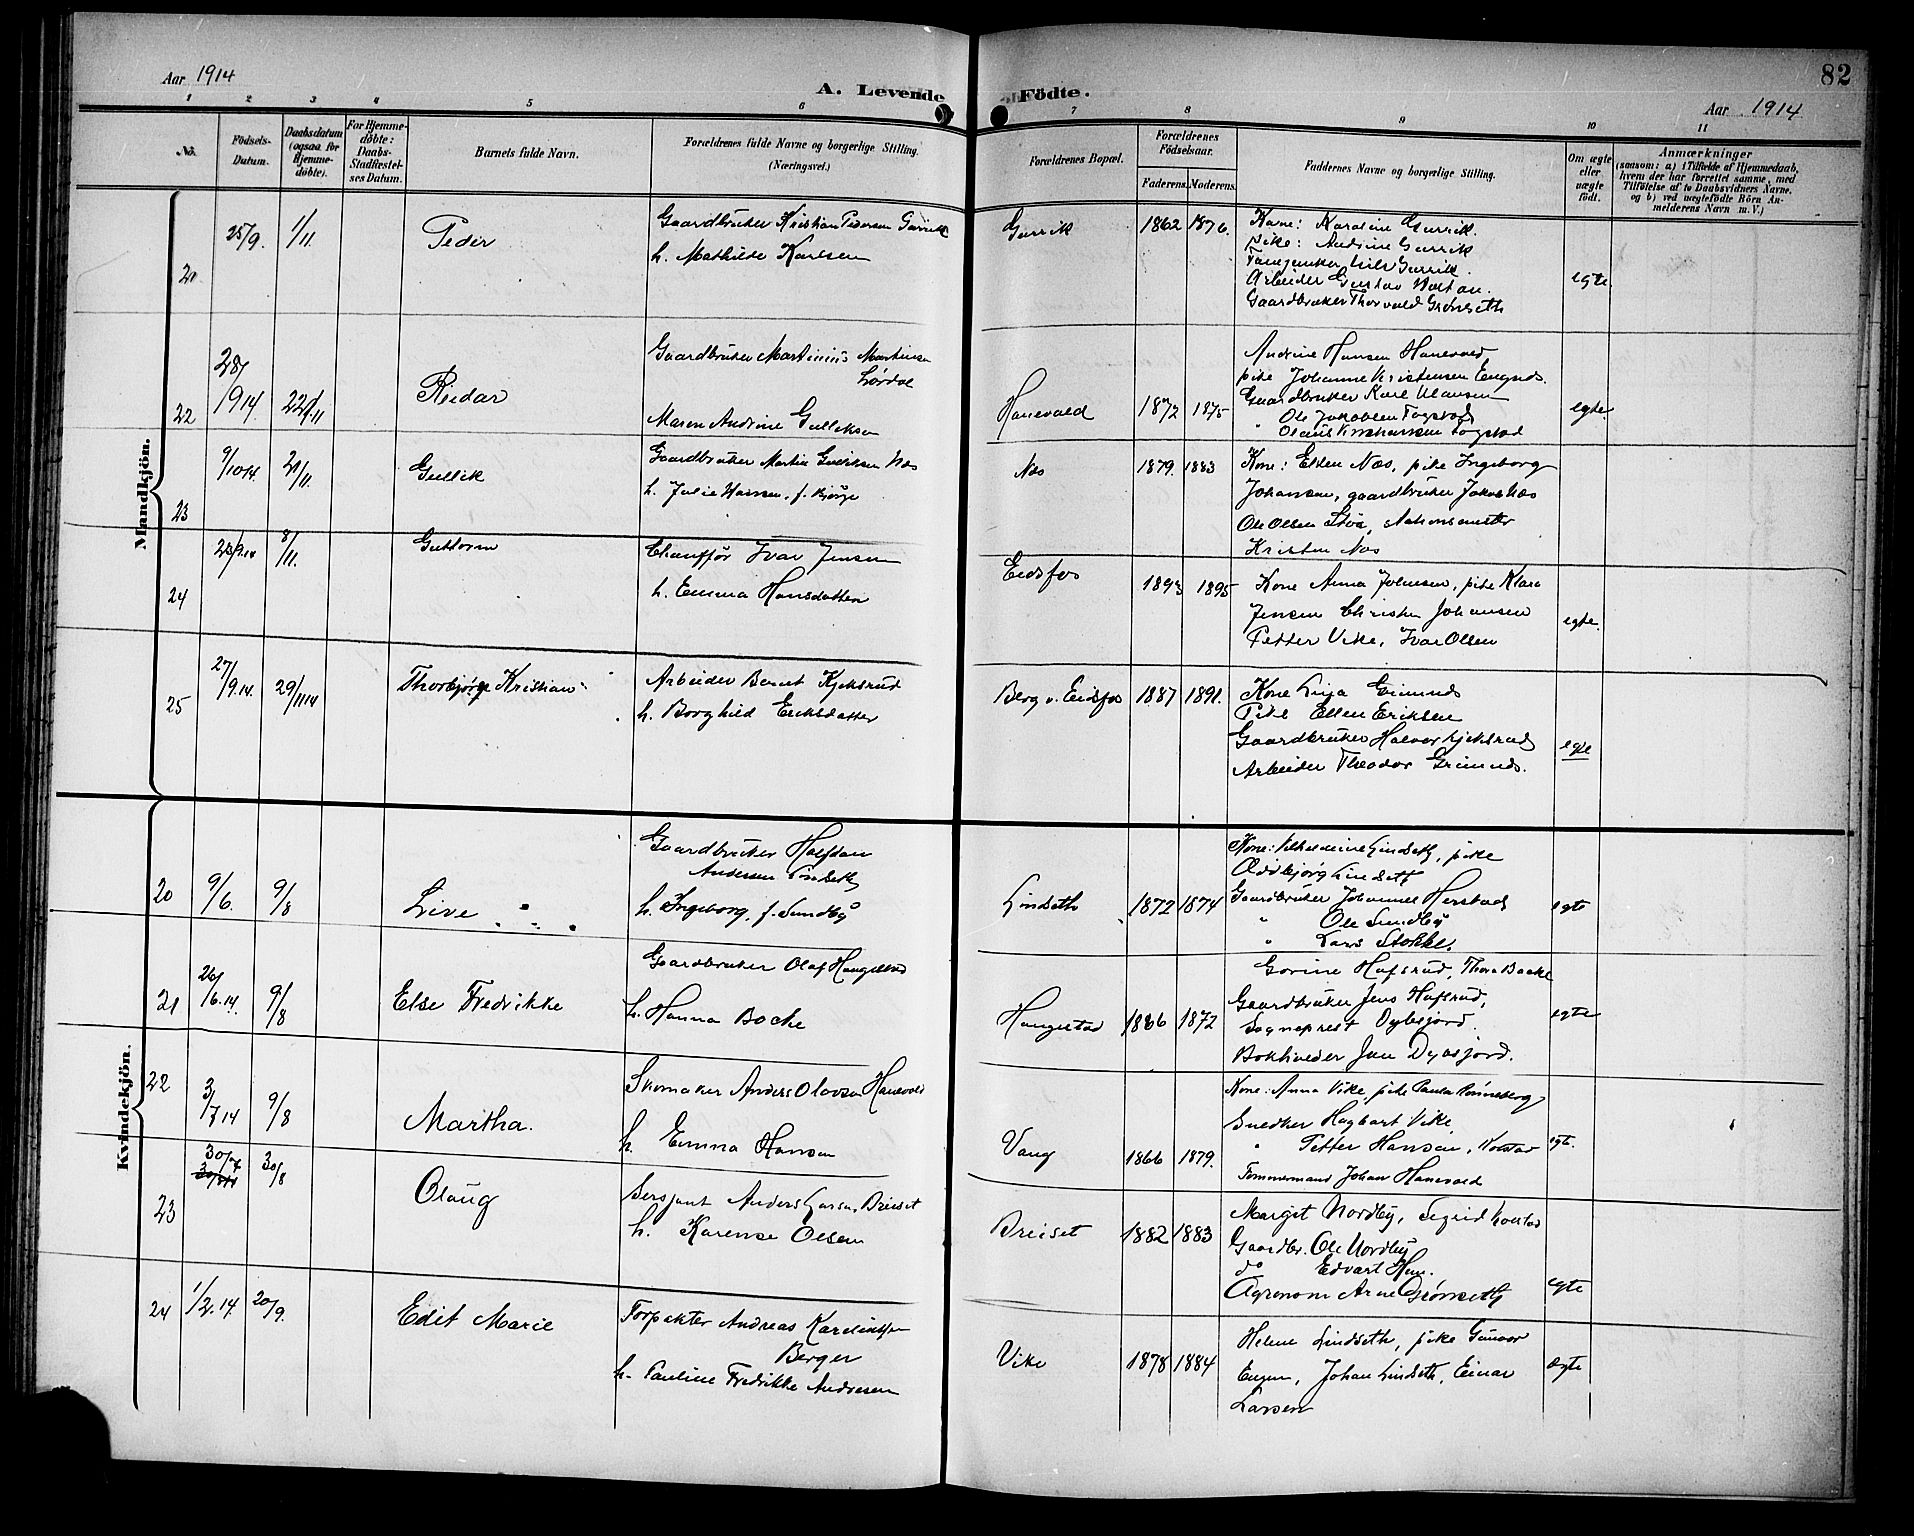 Aar 1914
A. Levende Födte.
82
Aar 1914
1 2 3 4 5 6 7 8 9 10 11
No.
Födsels-Datum.
Daabsdatum (ogsaa for Hjemme-döbte).
For Hjemme-döbte: Daabs-Stadfæstel-ses Datum.
Barnets fulde Navn.
Forældrenes fulde Navne og borgerlige Stilling. (Næringsvei.)
Forældrenes Bopæl.
Forældrenes Födselsaar.
Faderens. Moderens.
Faddernes Navne og borgerlige Stilling.
Om ægte eller uægte födt.
Anmærkninger
(saasom: a) i Tilfælde af Hjemmedaab, hvem der har forrettet samme, med Tilföielse af to Daabsvidners Navne. og b) ved uægtefödte Börn An-melderens Navn m. V.)
Mandkjön.
21 25/9. 1/11. Peder
Gaardbruker Kristian Pedersen Gurrik
h. Mathilde Karlsen
Gurrik 1862 1876.
Kone: Karoline Gurrik.
pike: Andrine Gurrik
Nils Gurrik.
Arbeider Gustav
Gaardbruker Thorvald Grønseth
egte.
22 28/ 1914 22/11 Reidar
Gaardbruker Martinius Martinsen
Maren Andrine Gulliksen
Hanevald 1872 1875
Andrine Hansen Hanevald
pike Johanne Kristensen
Gaardbruker Karl Clausen
" Ole Jakobsen Fogstad
" Olaus Fogstad
egte
23 9/10 14. 21/11. Gullik
Gaardbruker Martin Gulliksen Næs
h. Julie Hansen, f. Bjørge
Næs 1879. 1883
Kone: Ellen Næs, pike Ingeborg
Johansen, gaardbruker Jakob Næs
Ole Olsen, stationsmester
Kristen Næs
24 8/11. Guttorm
Chauffør Ivar Jensen
h. Emma Hansdatter
Eidsfos 1893 1895
Kone Anna Johnsen, pike Klara
Jensen Christen Johansen
Petter Vike, Ivar Olsen
egte.
25 27/9.14. 29/11 14 Thorbjørn Kristian
Arbeider Bernt Kjeksrud
h. Borghild Eriksdatter
Berg v. Eidsfos 1887 1891.
Kone
Pike Ellen Eriksen
Gaardbruker Halvor Kjeksrud
Arbeider Theodor
egte
Kvindekjön.
20 9/6. 9/8 Live
Gaardbruker Halfdan
Andersen Lindseth
h. Ingeborg, f. Sundby
Lindseth 1872 1874
Kone: Vilhelmine Lindseth, pike
Oddbjørg Lindseth
Gaardbruker Johannes Herstad
" Ole Sundby
" Lars Stokke.
egte
21 26/6.14. 9/8 Else Fredrikke
Gaardbruker Olaf Haugestad
h. Hanna Bache
Haugestad 1866 1872
Gorine Hafsrud, Thora Bache
Gaardbruker Jens Hafsrud,
Sogneprest Dybsjord.
Bokholder Jan Dybsjord.
egte
22 3/7 14 9/8 Martha.
Skomaker Anders Olavsen Hanevold
h. Emma Hansen
Vang 1866 1879.
Kone: Anna Vike, pike Paula Rønneberg
Snedker Hagbart Vike
" Petter Hansen, Kolstad
Tømmermand Johan Hanevold
egte.
23 30/7 30/8 Olaug
Sersjant Anders Larsen Breiset
h. Karense Olsen
Breiset 1882 1883
Margit Nordby, Sigrid Kolstad
Gaardbr. Ole Nordby
do Edvart
Agronom Arne Grønseth
egte
24 1/2.14. 20/9. Edit Marie
Forpakter Andreas Karelius
Berger
h. Pauline Fredrikke Andresen
Vike 1878 1884
Helene Lindseth, pike Gunvor
Engen, Johan Lindseth, Einar
Larsen
ægte